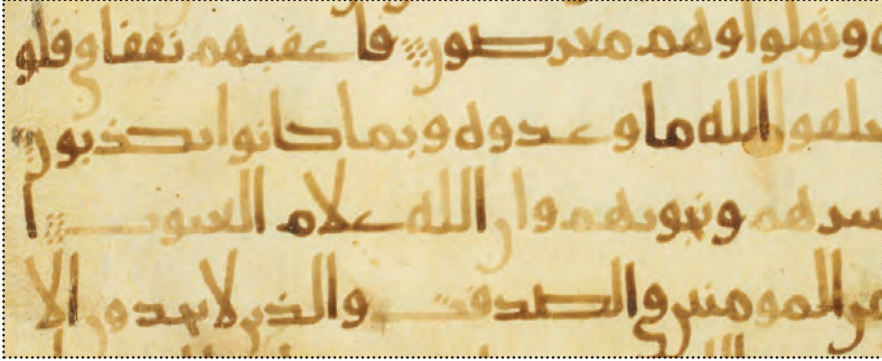 ه وتولوا وهم معرضون فاعقبهم نفقا في قلو
خلفوا الله ما وعدوه وبما كانوا يكذبون
سرهم ونجويهم وان الله علام الغيوب ا
من المومنين في الصدقت والذين لا يجدون الا